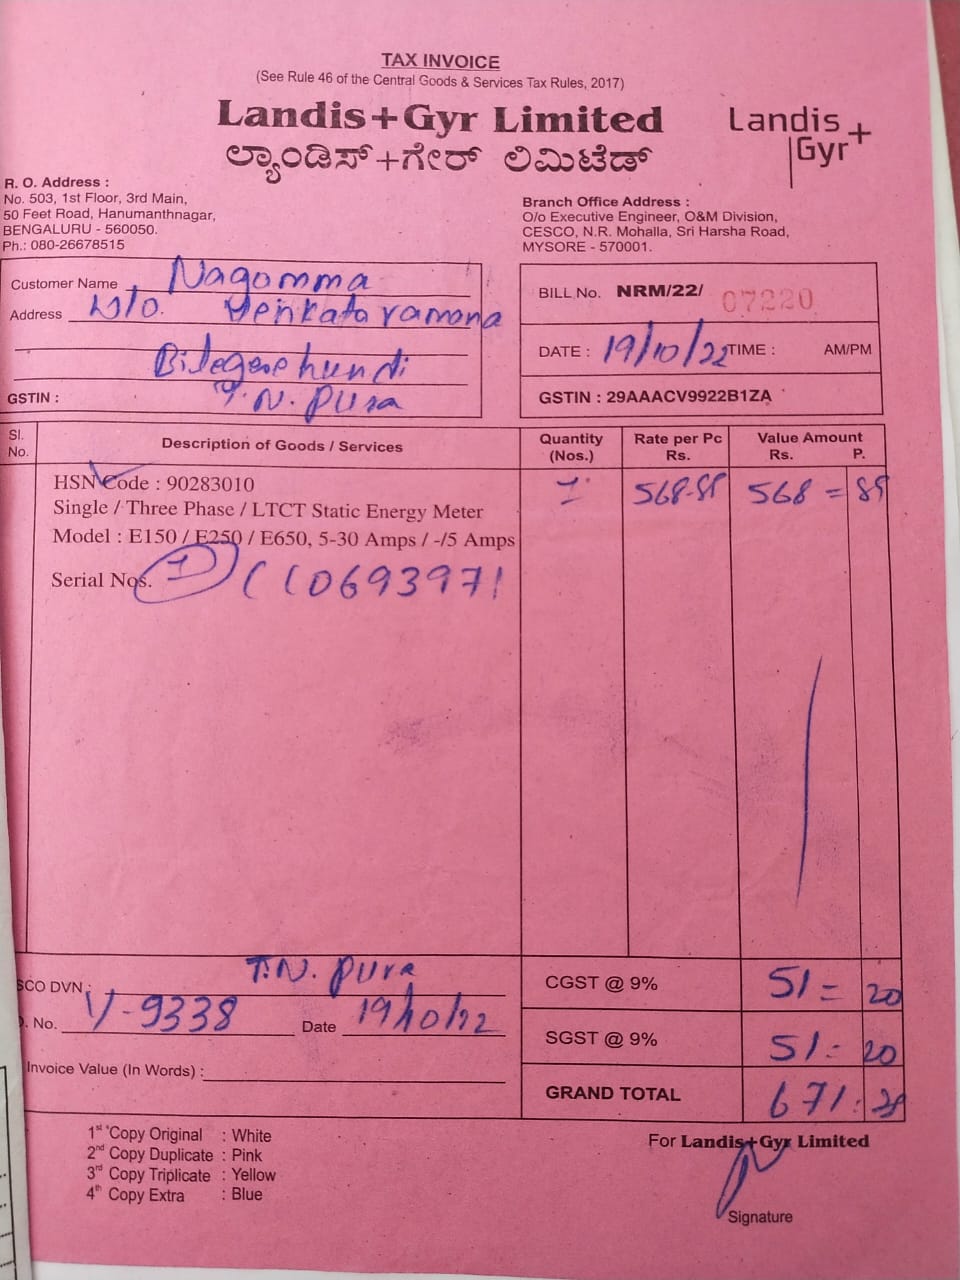 TAX INVOICE
(See Rule 46 of the Central Goods & Services Tax Rules, 2017)
Landis+Gyr Limited
ಲ್ಯಾಂಡಿಸ್+ಗೇರ್ ಲಿಮಿಟೆಡ್
Landis
Gyr+
R. O. Address :
No. 503, 1st Floor, 3rd Main,
50 Feet Road, Hanumanthnagar,
BENGALURU - 560050.
Ph.: 080-26678515
Branch Office Address :
O/o Executive Engineer, O&M Division,
CESCO, N.R. Mohalla, Sri Harsha Road,
MYSORE - 570001.
Customer Name Nagomma
Address W/O. Venkataramona
Bilegerehundi
GSTIN : T.N. Pura
BILL No. NRM/22/ 07220
DATE : 19/10/22 TIME : AM/PM
GSTIN : 29AAACV9922B1ZA
Sl. No. Description of Goods / Services Quantity (Nos.) Rate per Pc Rs. Value Amount Rs. P.
HSN Code : 90283010 1 568-89 568 = 89
Single / Three Phase / LTCT Static Energy Meter
Model : E150 / E250 / E650, 5-30 Amps / -/5 Amps
Serial Nos. 1 110693971
SCO DVN : T.N. Pura
. No. V-9338 Date 19/10/22
Invoice Value (In Words) :
CGST @ 9% 51 = 20
SGST @ 9% 51 = 20
GRAND TOTAL 671
1st Copy Original : White
2nd Copy Duplicate : Pink
3rd Copy Triplicate : Yellow
4th Copy Extra : Blue
For Landis+Gyr Limited
Signature